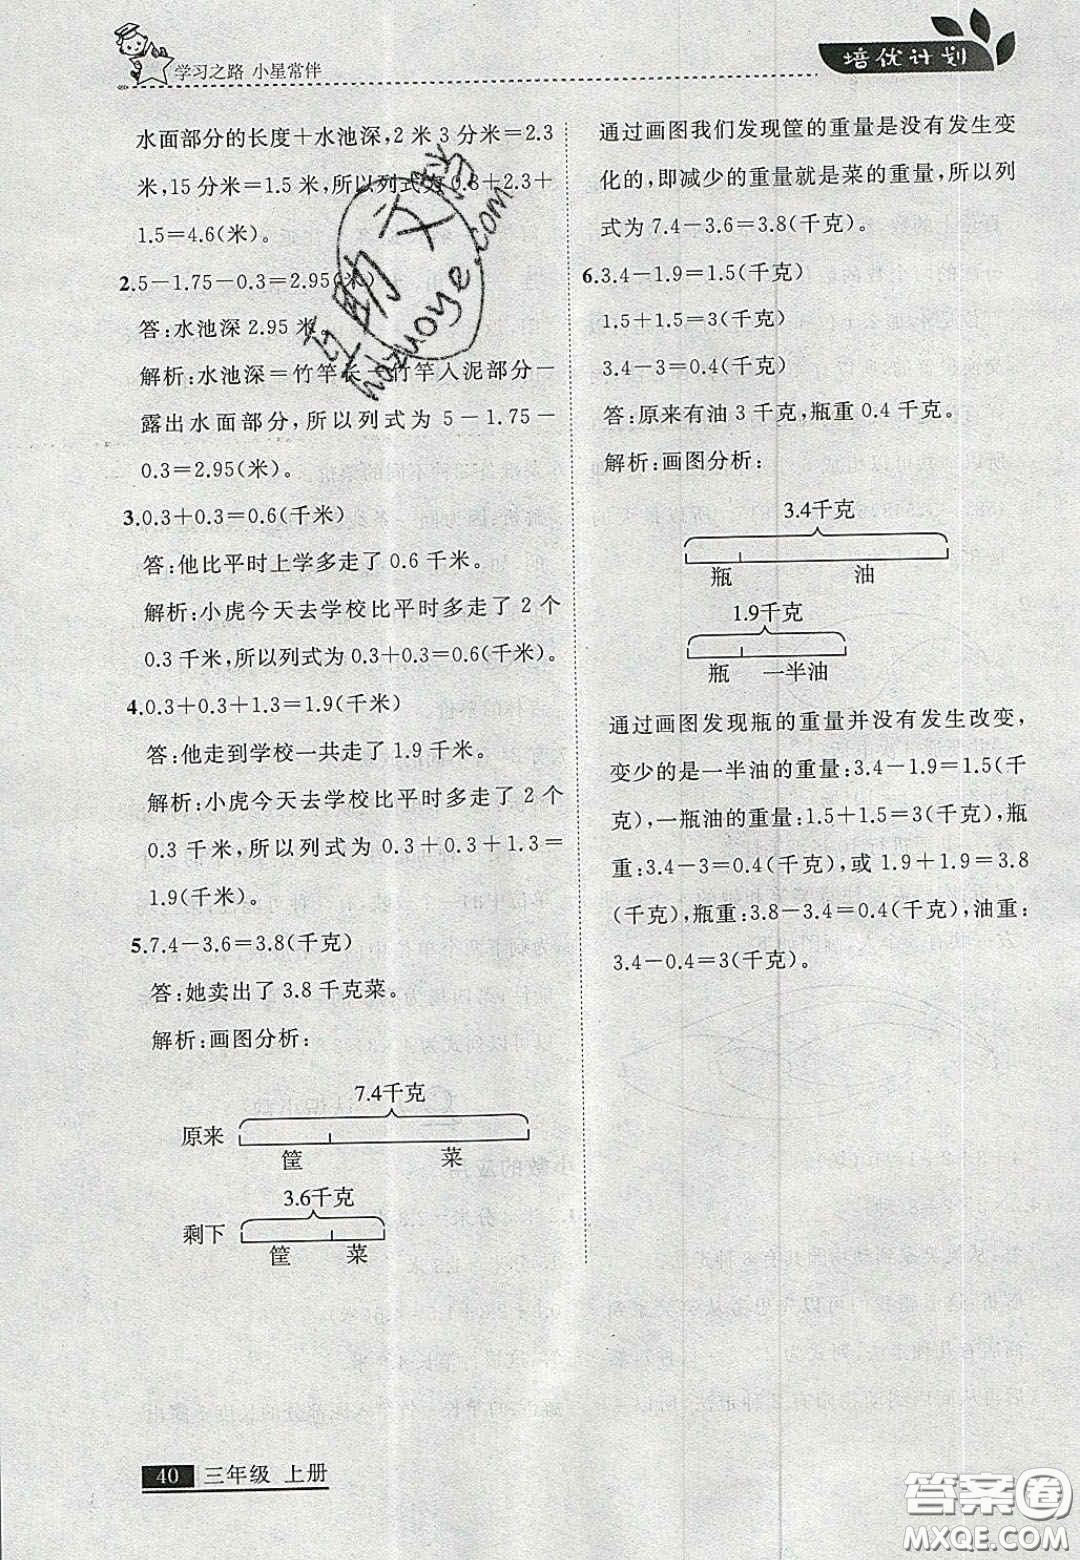 学习之路 小星常伴
培优计划
水面部分的长度＋水池深,2 米 3 分米＝2.3
米,15 分米＝1.5 米,所以列式为 0.3＋2.3＋
1.5＝4.6(米)。
2.5－1.75－0.3＝2.95(米)
答:水池深 2.95 米。
解析:水池深＝竹竿长－竹竿入泥部分－
露出水面部分,所以列式为 5－1.75－
0.3＝2.95(米)。
3.0.3＋0.3＝0.6(千米)
答:他比平时上学多走了 0.6 千米。
解析:小虎今天去学校比平时多走了 2 个
0.3 千米,所以列式为 0.3＋0.3＝0.6(千米)。
4.0.3＋0.3＋1.3＝1.9(千米)
答:他走到学校一共走了 1.9 千米。
解析:小虎今天去学校比平时多走了 2 个
0.3 千米,所以列式为 0.3＋0.3＋1.3＝
1.9(千米)。
5.7.4－3.6＝3.8(千克)
答:她卖出了 3.8 千克菜。
解析:画图分析:
7.4千克
原来
筐 菜
3.6千克
剩下
筐 菜
通过画图我们发现筐的重量是没有发生变
化的,即减少的重量就是菜的重量,所以列
式为 7.4－3.6＝3.8(千克)。
6.3.4－1.9＝1.5(千克)
1.5＋1.5＝3(千克)
3.4－3＝0.4(千克)
答:原来有油 3 千克,瓶重 0.4 千克。
解析:画图分析:
3.4千克
瓶 油
1.9千克
瓶 一半油
通过画图发现瓶的重量并没有发生改变,
变少的是一半油的重量:3.4－1.9＝1.5(千
克),一瓶油的重量:1.5＋1.5＝3(千克),瓶
重:3.4－3＝0.4(千克),或 1.9＋1.9＝3.8
(千克),瓶重:3.8－3.4＝0.4(千克),油重:
3.4－0.4＝3(千克)。
互助文档
huzuoye.com
40 三年级 上册
答案圈
MXQE.COM